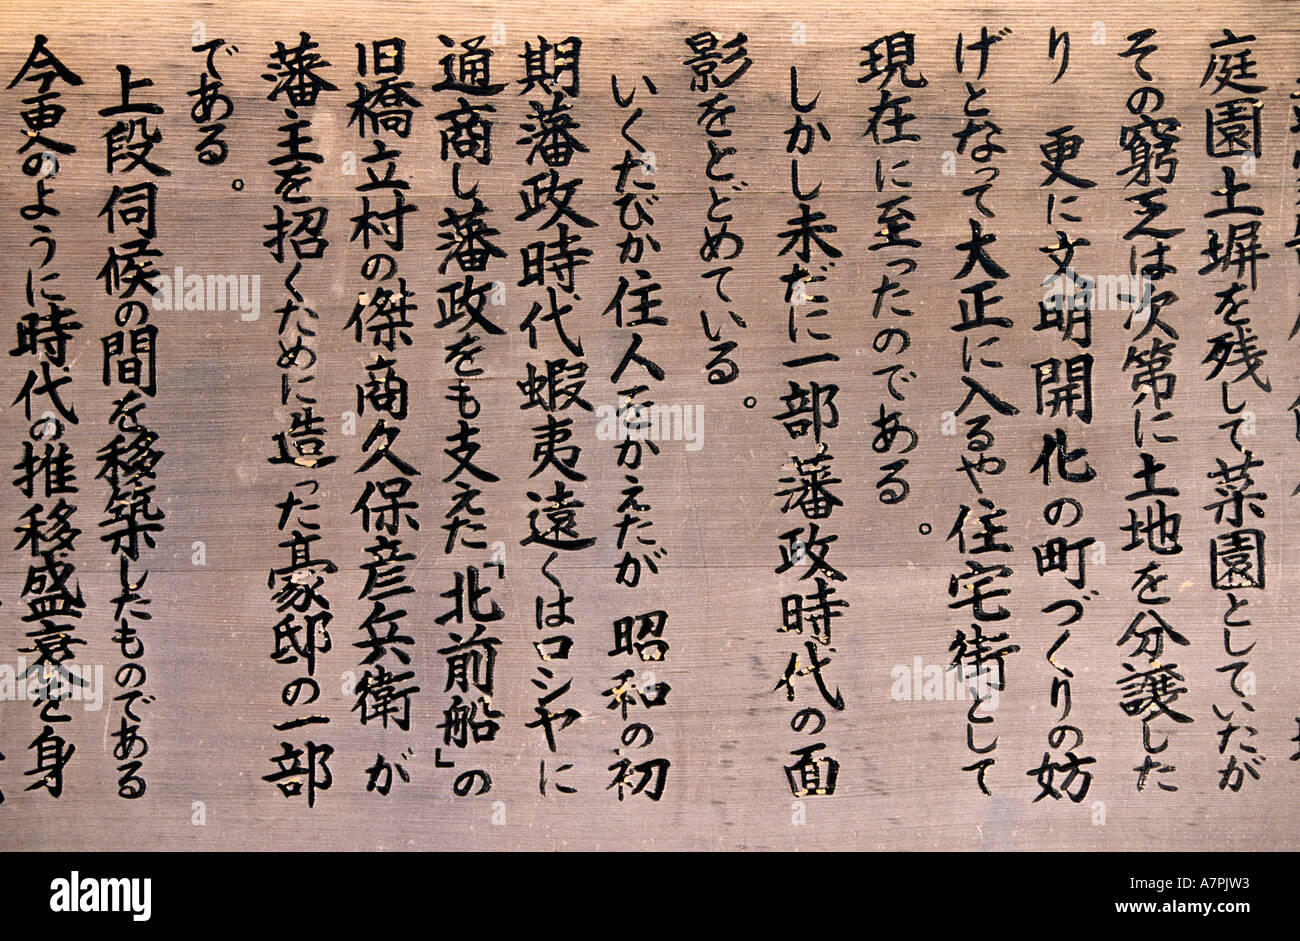 庭園土塀を残して菜園としていたが
その窮乏は次第に土地を分譲した
り 更に文明開化の町づくりの妨
げとなって大正に入るや住宅街として
現在に至ったのである。
しかし未だに一部藩政時代の面
影をとどめている。
いくたびか住人をかえたが 昭和の初
期藩政時代蝦夷遠くはロシヤに
通商し藩政をも支えた「北前船」の
旧橋立村の傑商久保彦兵衛が
藩主を招くために造った豪邸の一部
である。
上段伺候の間を移築したものである
今更のように時代の推移盛衰を身
alamy
Image ID: A7PJW3
www.alamy.com